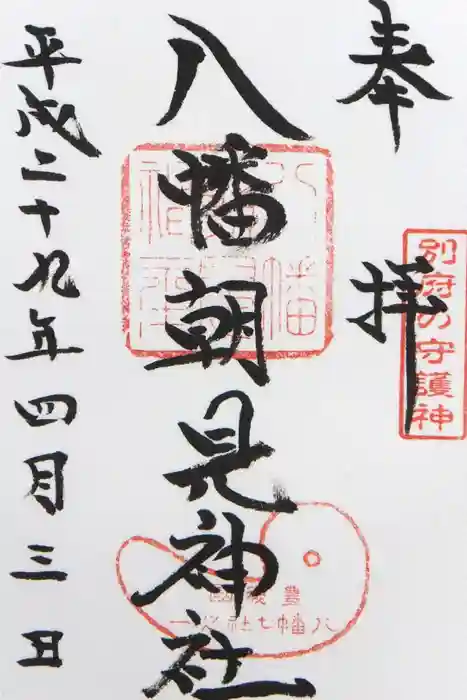 奉拝
別府の守護神
八幡朝見神社
豊後国
八幡七社ノ一
平成二十九年四月三日